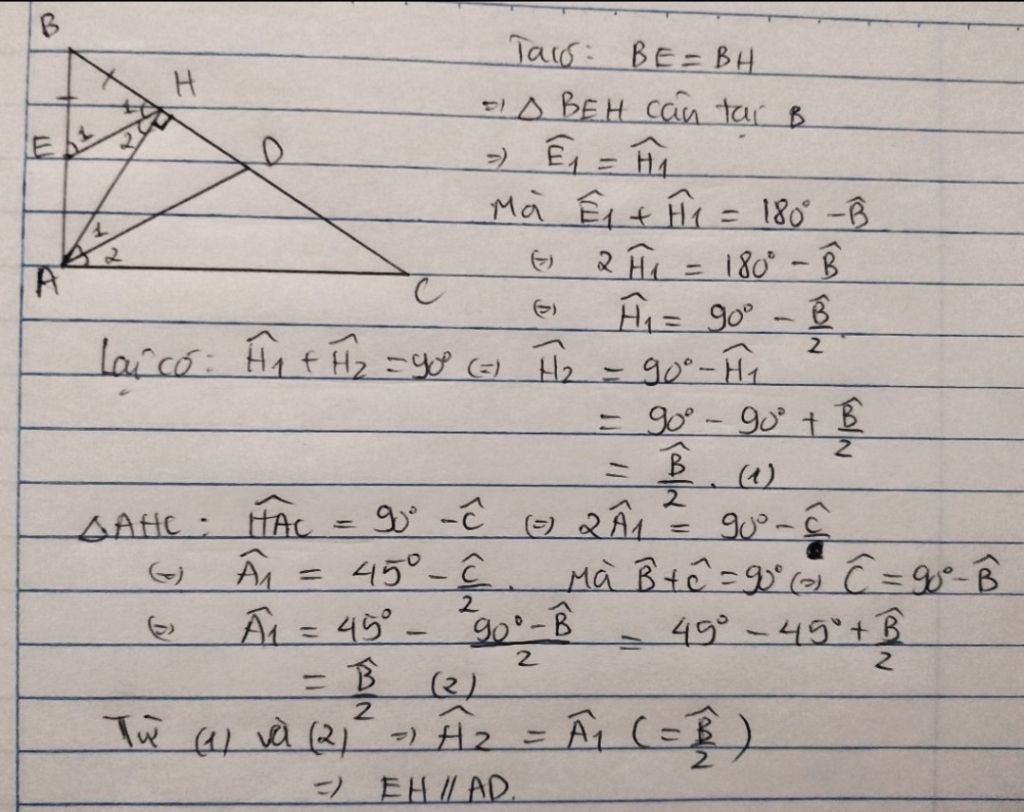 B
H
1
1
2
E
D
1
2
A
C
Ta có: BE = BH
=> △ BEH cân tại B
=> Ê₁ = Ĥ₁
Mà Ê₁ + Ĥ₁ = 180° - B̂
(=) 2Ĥ₁ = 180° - B̂
(=) Ĥ₁ = 90° - B̂/2
Lại có: Ĥ₁ + Ĥ₂ = 90° (=) Ĥ₂ = 90° - Ĥ₁
= 90° - 90° + B̂/2
= B̂/2. (1)
△AHC: HAC̑ = 90° - Ĉ (=) 2Â₁ = 90° - Ĉ
(=) Â₁ = 45° - Ĉ/2. Mà B̂ + Ĉ = 90° (=) Ĉ = 90° - B̂
(=) Â₁ = 45° - (90° - B̂)/2 = 45° - 45° + B̂/2
= B̂/2 (2)
Từ (1) và (2) => Ĥ₂ = Â₁ (= B̂/2)
=> EH // AD.